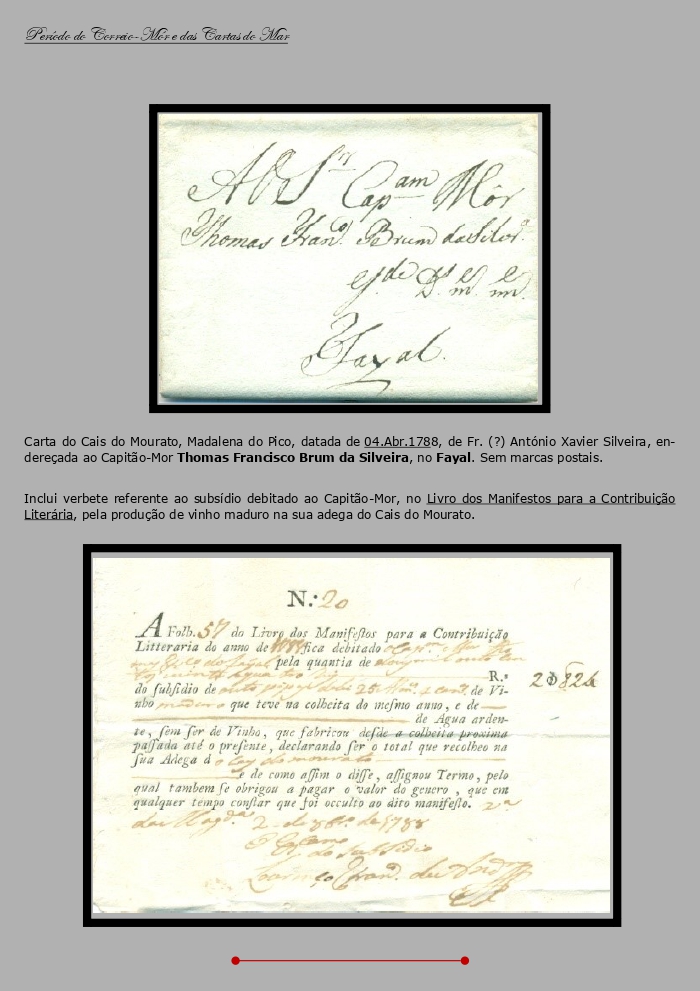 Período do Correio-Mór e das Cartas do Mar
A O Sr Capam Môr
Thomas Franco. Brum da Silvra.
Fayal.
Carta do Cais do Mourato, Madalena do Pico, datada de 04.Abr.1788, de Fr. (?) António Xavier Silveira, en-
dereçada ao Capitão-Mor Thomas Francisco Brum da Silveira, no Fayal. Sem marcas postais.
Inclui verbete referente ao subsídio debitado ao Capitão-Mor, no Livro dos Manifestos para a Contribuição
Literária, pela produção de vinho maduro na sua adega do Cais do Mourato.
N.: 20
A Folh. 57 do Livro dos Manifeſtos para a Contribuição
Litteraria do anno de fica debitado
pela quantia de
R.s
do ſubſidio de de Vi-
nho maduro que teve na colheita do meſmo anno, e de
de Agua arden-
te, ſem ſer de Vinho, que fabricou deſde a colheita proxima
paſſada até o preſente, declarando ſer o total que recolheo na
ſua Adega d o Cay do mourato
e de como aſſim o diſſe, aſſignou Termo, pelo
qual tambem ſe obrigou a pagar o valor do genero, que em
qualquer tempo conſtar que foi occulto ao dito manifeſto.
2 de de 1788
do Subsidio